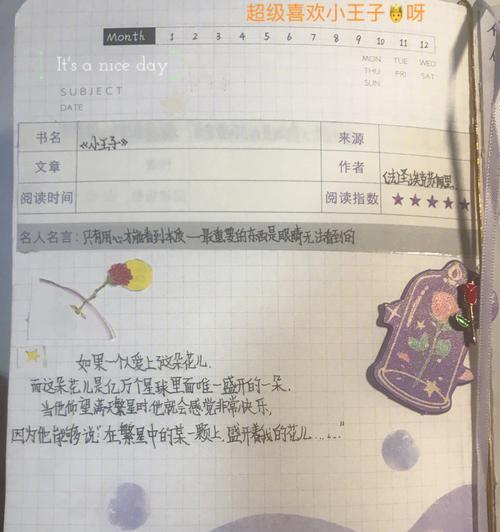 超级喜欢小王子🤴呀
Month 1 2 3 4 5 6 7 8 9 10 11 12
It's a nice day
MON TUE WED
THU FRI SAT
SUN
SUBJECT
DATE
书名 《小王子》 来源
文章 作者 (法)圣埃克苏佩里
阅读时间 阅读指数 ★★★★★
名人名言：只有用心才能看到本质—最重要的东西是眼睛无法看到的
如果一个人爱上这朵花儿,
而这朵花儿是亿万个星球里面唯一盛开的一朵,
当他仰望满天繁星时,他就会感觉非常快乐,
因为他能够说"在繁星中的某一颗上,盛开着我的花儿......"